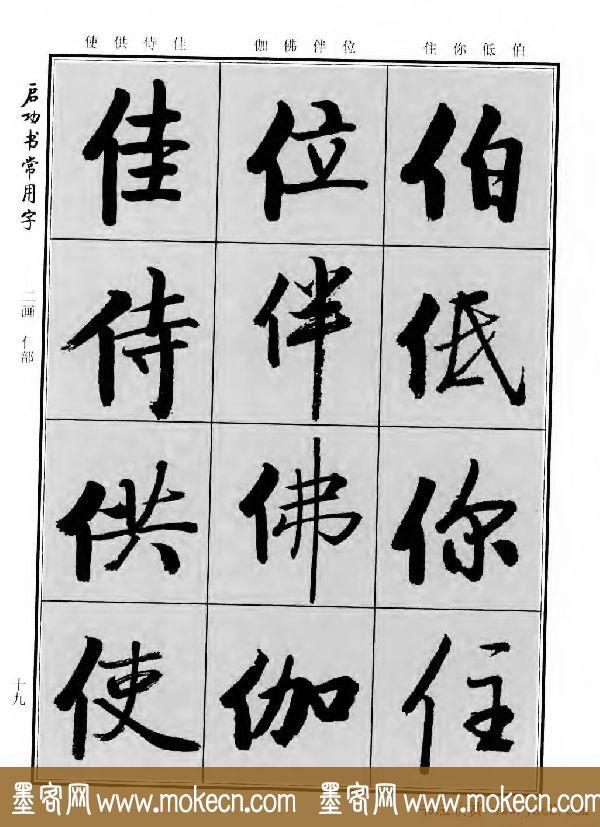 使供侍佳 伽佛伴位 住你低伯
启功书常用字
二画 亻部
十九
伯
低
你
住
位
伴
佛
伽
佳
侍
供
使
墨客网 www.mokecn.com 墨客网 www.mokecn.com